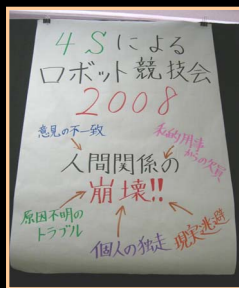 4Sによる
ロボット競技会
2008
意見の不一致
私的用事
からの欠員
人間関係の
崩壊!!
原因不明の
トラブル
個人の独走
現実逃避